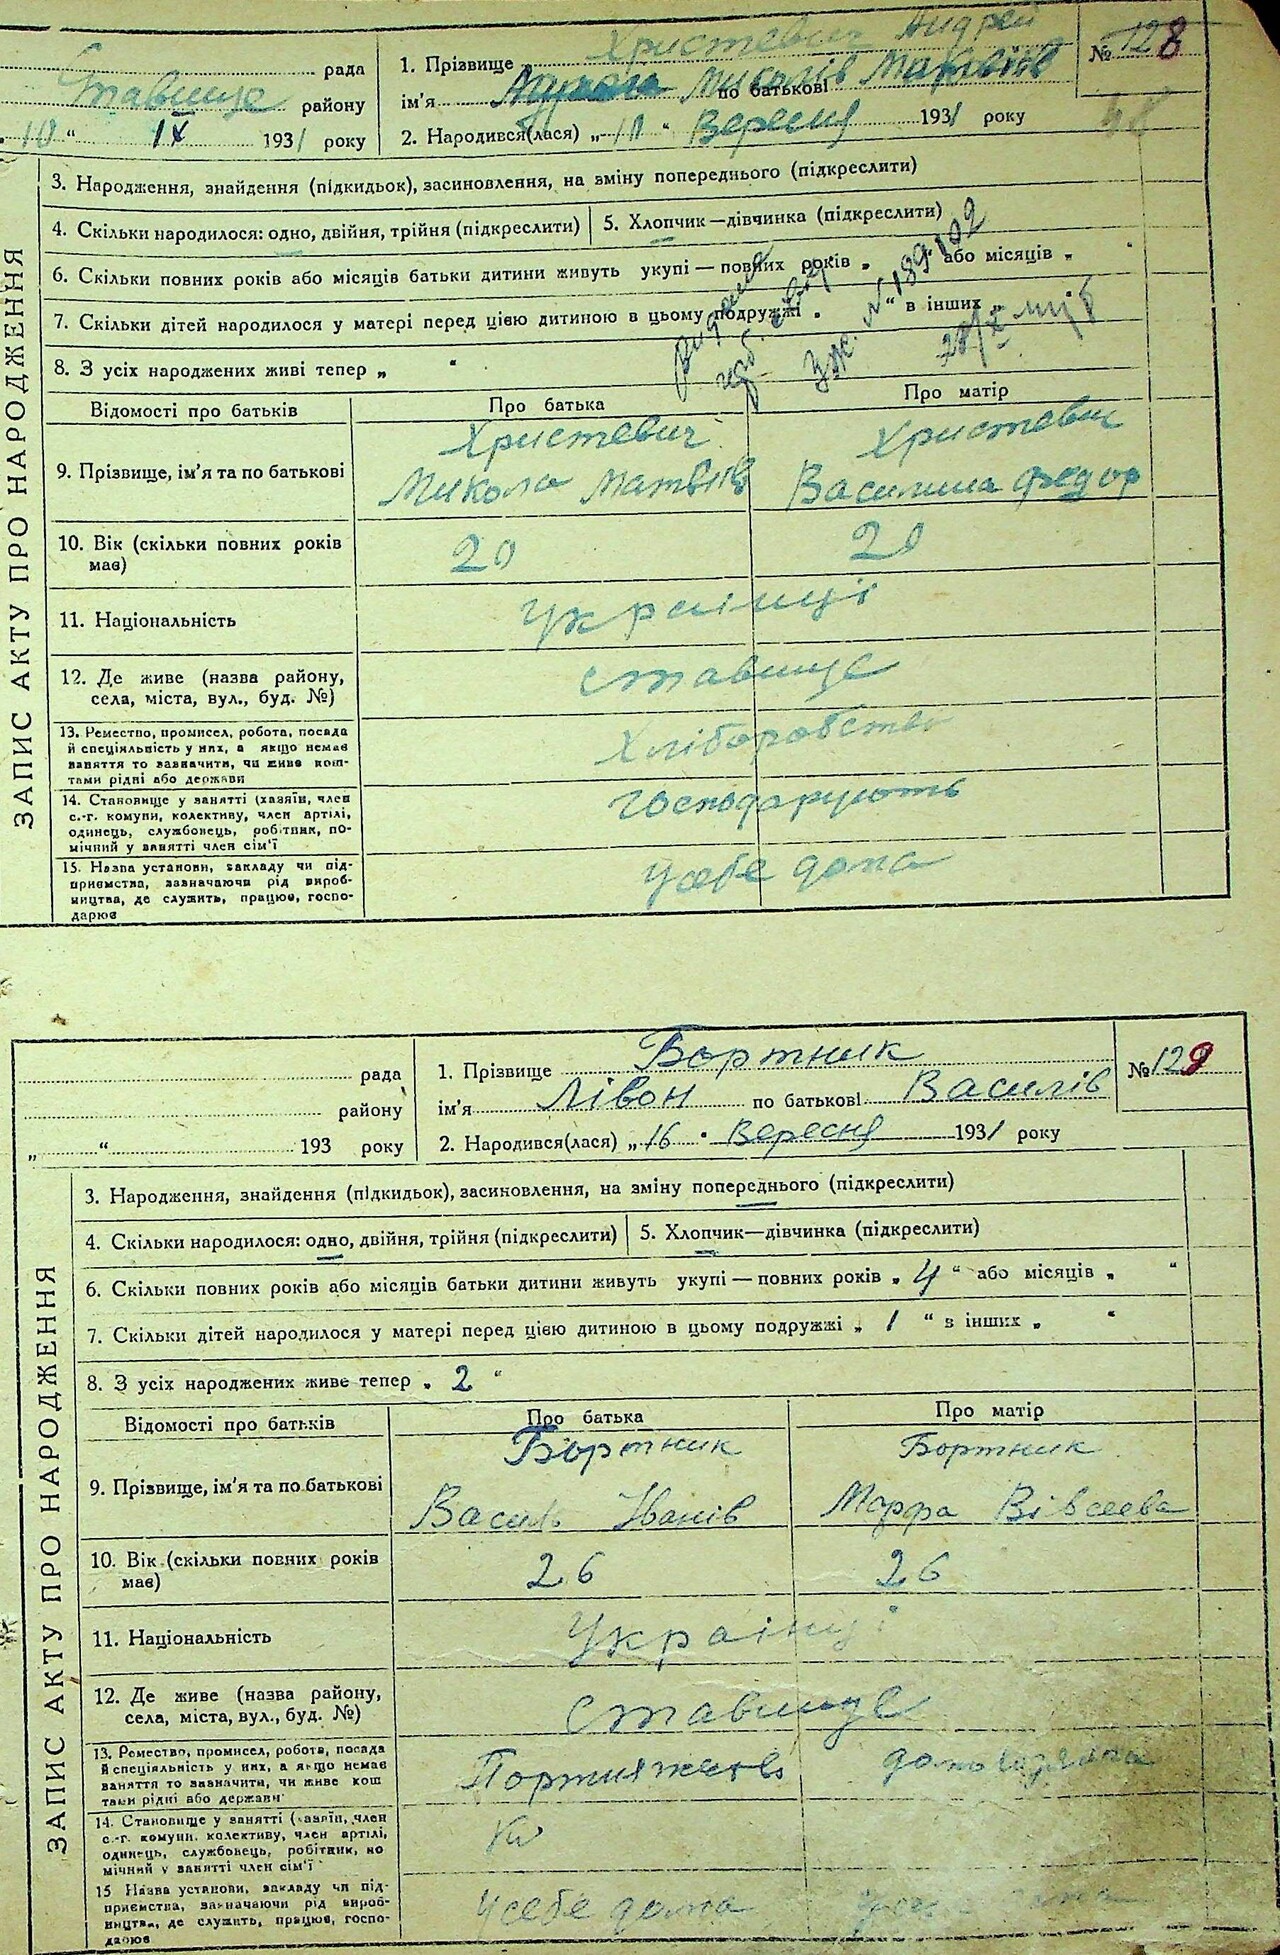 рада
Ставище району
„ 10 “ ІХ 1931 року
1. Прізвище Христевич Андрей
ім'я Миколів по батькові
2. Народився(лася) „ 10 “ Вересня 1931 року
№ 128
3. Народження, знайдення (підкидьок), засиновлення, на зміну попереднього (підкреслити)
4. Скільки народилося: одно, двійня, трійня (підкреслити) 5. Хлопчик—дівчинка (підкреслити)
6. Скільки повних років або місяців батьки дитини живуть укупі — повних років „ “ або місяців „ “
7. Скільки дітей народилося у матері перед цією дитиною в цьому подружжі „ “ в інших „
8. З усіх народжених живі тепер „ “
№ 189102
28/X
ЗАПИС АКТУ ПРО НАРОДЖЕННЯ
Відомості про батьків Про батька Про матір
Христевич Христевич
9. Прізвище, ім'я та по батькові Микола Матвіїв Василина Федор
10. Вік (скільки повних років має) 20 20
11. Національність Українці
12. Де живе (назва району, села, міста, вул., буд. №) Ставище
13. Ремество, промисел, робота, посада
й спеціяльність у них, а якщо немає
заняття то зазначити, чи живе кош-
тами рідні або держави
Хліборобство
14. Становище у занятті (хазяїн, член
с.-г. комуни, колективу, член артілі,
одинець, службовець, робітник, по-
мічний у занятті член сім'ї
Господарують
15. Назва установи, закладу чи під-
приємства, зазначаючи рід вироб-
ництва, де служить, працює, госпо-
дарює
У себе дома
рада
району
„ “ 193 року
1. Прізвище Бортник
ім'я Лівон по батькові Василів
2. Народився(лася) „ 16 “ Вересня 1931 року
№ 129
3. Народження, знайдення (підкидьок), засиновлення, на зміну попереднього (підкреслити)
4. Скільки народилося: одно, двійня, трійня (підкреслити) 5. Хлопчик—дівчинка (підкреслити)
6. Скільки повних років або місяців батьки дитини живуть укупі — повних років „ 4 “ або місяців „ “
7. Скільки дітей народилося у матері перед цією дитиною в цьому подружжі „ 1 “ з інших „ “
8. З усіх народжених живе тепер „ 2 “
ЗАПИС АКТУ ПРО НАРОДЖЕННЯ
Відомості про батьків Про батька Про матір
Бортник Бортник
9. Прізвище, ім'я та по батькові Василь Іванів Марфа Вівсеева
10. Вік (скільки повних років має) 26 26
11. Національність Українці
12. Де живе (назва району, села, міста, вул., буд. №) Ставище
13. Ремество, промисел, робота, посада
й спеціяльність у них, а якщо немає
заняття то зазначити, чи живе кош
тами рідні або держави
14. Становище у занятті (хазяїн, член
с.-г. комуни, колективу, член артілі,
одинець, службовець, робітник, по
мічний у занятті член сім'ї
15 Назва установи, закладу чи під-
приємства, зазначаючи рід вироб-
ництва, де служить, працює, госпо-
дарює
У себе дома